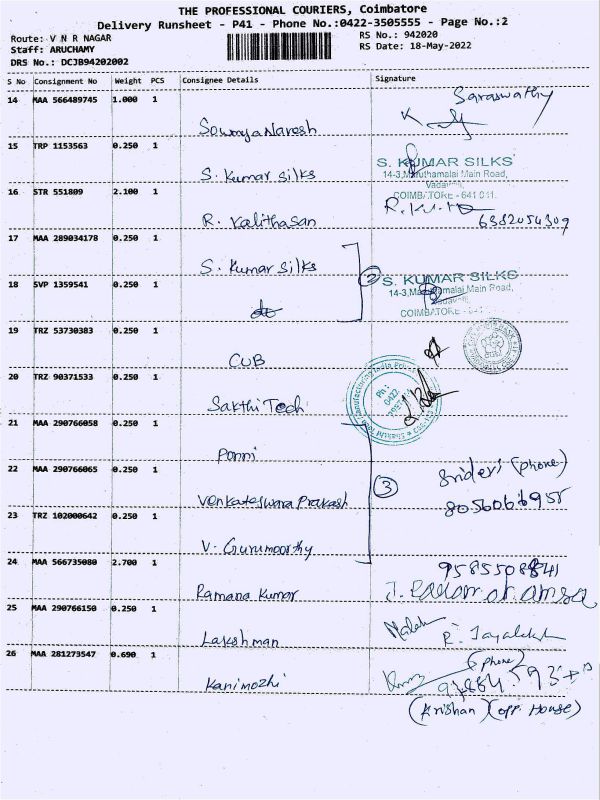 THE PROFESSIONAL COURIERS, Coimbatore
Delivery Runsheet - P41 - Phone No.:0422-3505555 - Page No.:2
Route: V N R NAGAR RS No.: 942020
Staff: ARUCHAMY RS Date: 18-May-2022
DRS No.: DCJB94202002
S No Consignment No Weight PCS Consignee Details Signature
14 MAA 566489745 1.000 1 Saraswathy
Sowmya Naresh
15 TRP 1153563 0.250 1 S. KUMAR SILKS
S. Kumar Silks 14-3, Maruthamalai Main Road,
Vadavalli,
16 STR 551809 2.100 1 COIMBATORE - 641 041.
R. Kalithasan 6382054309
17 MAA 289034178 0.250 1
S. Kumar Silks 2 S. KUMAR SILKS
18 SVP 1359541 0.250 1 14-3, Maruthamalai Main Road,
Vadavalli,
do COIMBATORE - 641
19 TRZ 53730383 0.250 1
CUB
20 TRZ 90371533 0.250 1 Ph : 0422
Sakthi Tech
21 MAA 290766058 0.250 1
Ponni
22 MAA 290766065 0.250 1 Sridevi (phone)
Venkateswara Prakash 3
23 TRZ 102000642 0.250 1
V. Gurumoorthy
24 MAA 566735080 2.700 1
Ramana Kumar
25 MAA 290766150 0.250 1
Lakshman
26 MAA 281273547 0.690 1 (phone)
Kanimozhi
(Krishan) (opp. House)